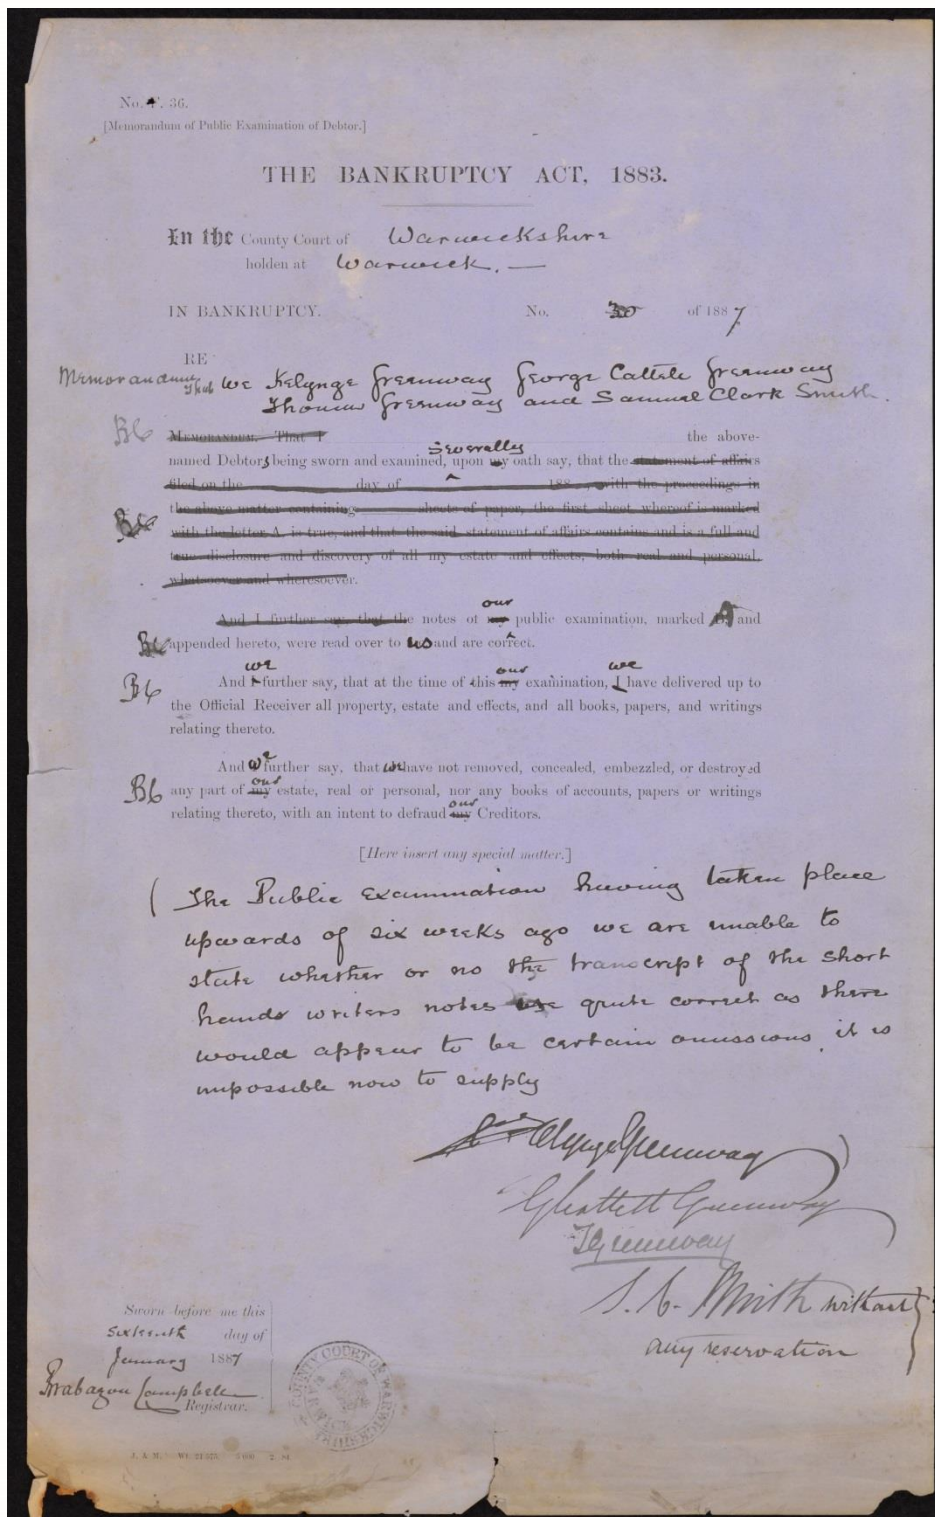 No. F. 36.
[Memorandum of Public Examination of Debtor.]
THE BANKRUPTCY ACT, 1883.
In the County Court of Warwickshire
holden at Warwick. —
IN BANKRUPTCY. No. 30 of 1887
RE
Memorandum that We Kelynge Greenway George Cattell Greenway
Thomas Greenway and Samuel Clark Smith.
BC MEMORANDUM. That I the above-
severally
named Debtors being sworn and examined, upon my oath say, that the statement of affairs
filed on the day of 188 , with the proceedings in
the above matter containing sheets of paper, the first sheet whereof is marked
BC with the letter A, is true, and that the said statement of affairs contains and is a full and
true disclosure and discovery of all my estate and effects, both real and personal,
whatsoever and wheresoever.
our
And I further say, that the notes of my public examination, marked A and
BC appended hereto, were read over to us and are correct.
we our we
BC And I further say, that at the time of this my examination, I have delivered up to
the Official Receiver all property, estate and effects, and all books, papers, and writings
relating thereto.
And we further say, that we have not removed, concealed, embezzled, or destroyed
our
BC any part of my estate, real or personal, nor any books of accounts, papers or writings
our
relating thereto, with an intent to defraud my Creditors.
[Here insert any special matter.]
( The Public Examination having taken place
upwards of six weeks ago we are unable to
state whether or no the transcript of the short
hand writers notes are quite correct as there
would appear to be certain omissions it is
impossible now to supply
Kelynge Greenway )
G Cattell Greenway
T Greenway
S. C. Smith without
any reservation
Sworn before me this
sixteenth day of
January 1887
Brabazon Campbell
Registrar.
COUNTY COURT OF WARWICKSHIRE
WARWICK